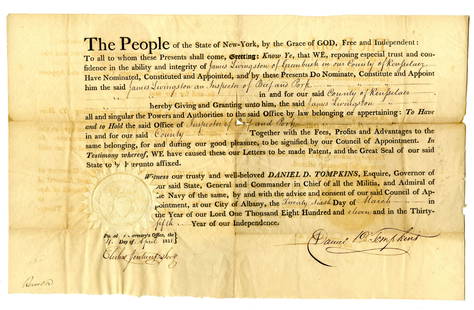 The People of the State of New-York, by the Grace of GOD, Free and Independent:
To all to whom these Presents shall come, Greeting: Know Ye, that WE, reposing especial trust and con-
fidence in the ability and integrity of James Livingston of Greenbush in our County of Rensselaer
Have Nominated, Constituted and Appointed, and by these Presents Do Nominate, Constitute and Appoint
him the said James Livingston an Inspector of Beef and Pork
in and for our said County of Rensselaer
hereby Giving and Granting unto him, the said James Livingston
all and singular the Powers and Authorities to the said Office by law belonging or appertaining: To Have
and to Hold the said Office of Inspector of and Pork
in our said County Together with the Fees, Profits and Advantages to the
same belonging, for and during our good pleasure, to be signified by our Council of Appointment. In
Testimony whereof, WE have caused these our Letters to be made Patent, and the Great Seal of our said
State to be hereunto affixed.
Witness our trusty and well-beloved DANIEL D. TOMPKINS, Esquire, Governor of
our said State, General and Commander in Chief of all the Militia, and Admiral of
the Navy of the same, by and with the advice and consent of our said Council of Ap-
pointment, at our City of Albany, the Day of March in
the Year of our Lord One Thousand Eight Hundred and eleven and in the Thirty-
fifth Year of our Independence.
Secretary's Office, the
Day of April 1811
Daniel D. Tompkins
Elisha Jenkins Secy